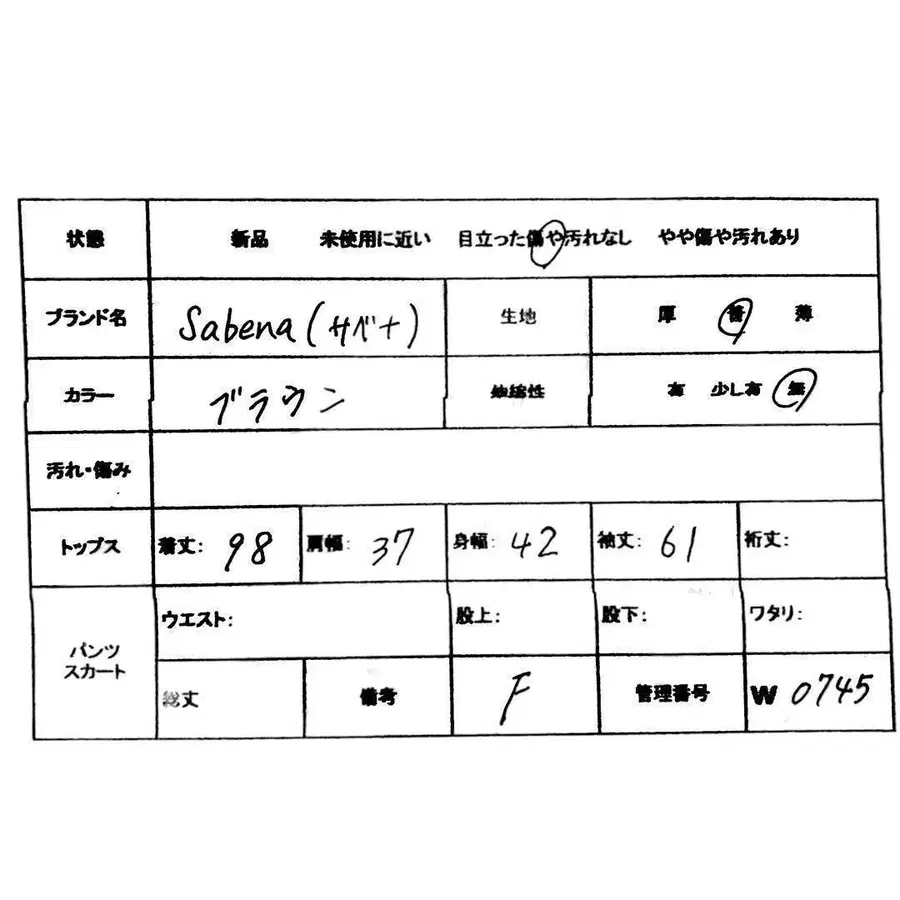 状態 新品 未使用に近い 目立った傷や汚れなし やや傷や汚れあり
ブランド名 Sabena(サベナ) 生地 厚 普 薄
カラー ブラウン 伸縮性 有 少し有 無
汚れ・傷み
トップス 着丈: 98 肩幅: 37 身幅: 42 袖丈: 61 裄丈:
パンツ スカート ウエスト: 股上: 股下: ワタリ:
総丈 備考 F 管理番号 W 0745